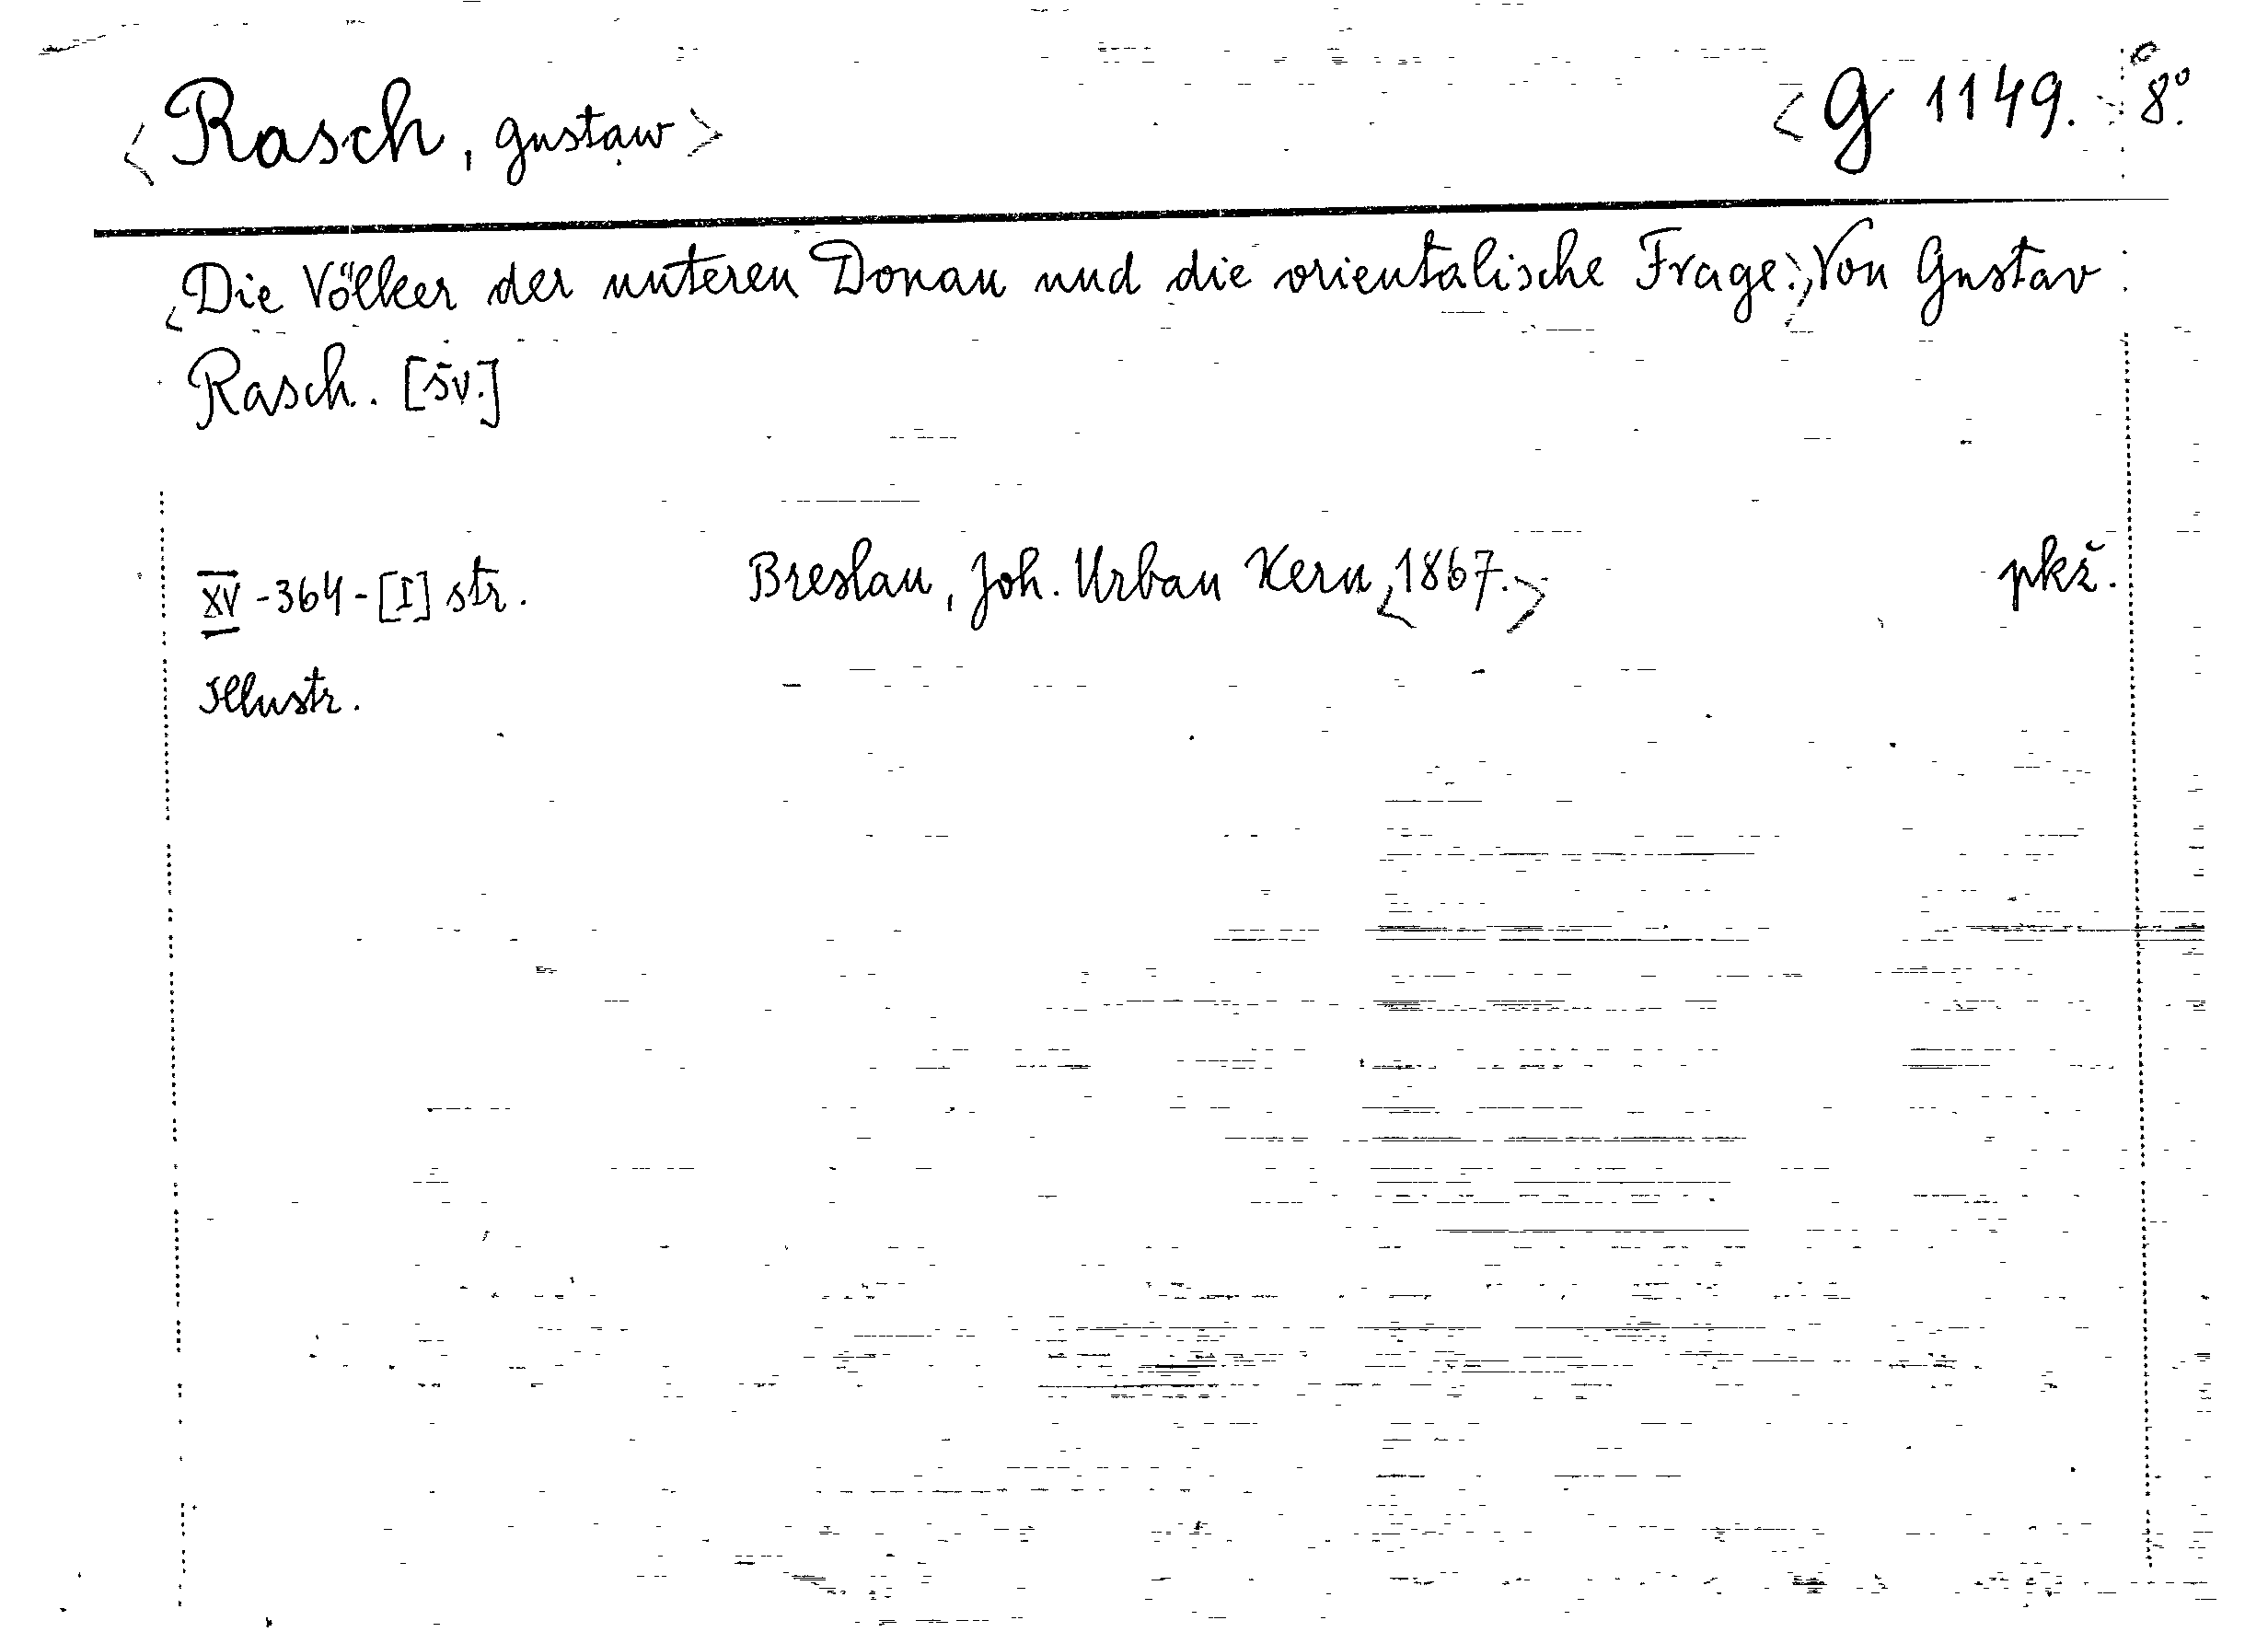 <Rasch, Gustaw> <G 1149. 8º.
<Die Völker der unteren Donau und die orientalische Frage.> Von Gustav
Rasch. [šv.]
XV-364-[I] str. Breslau, Joh. Urban Kern <1867.> pkž.
Illustr.